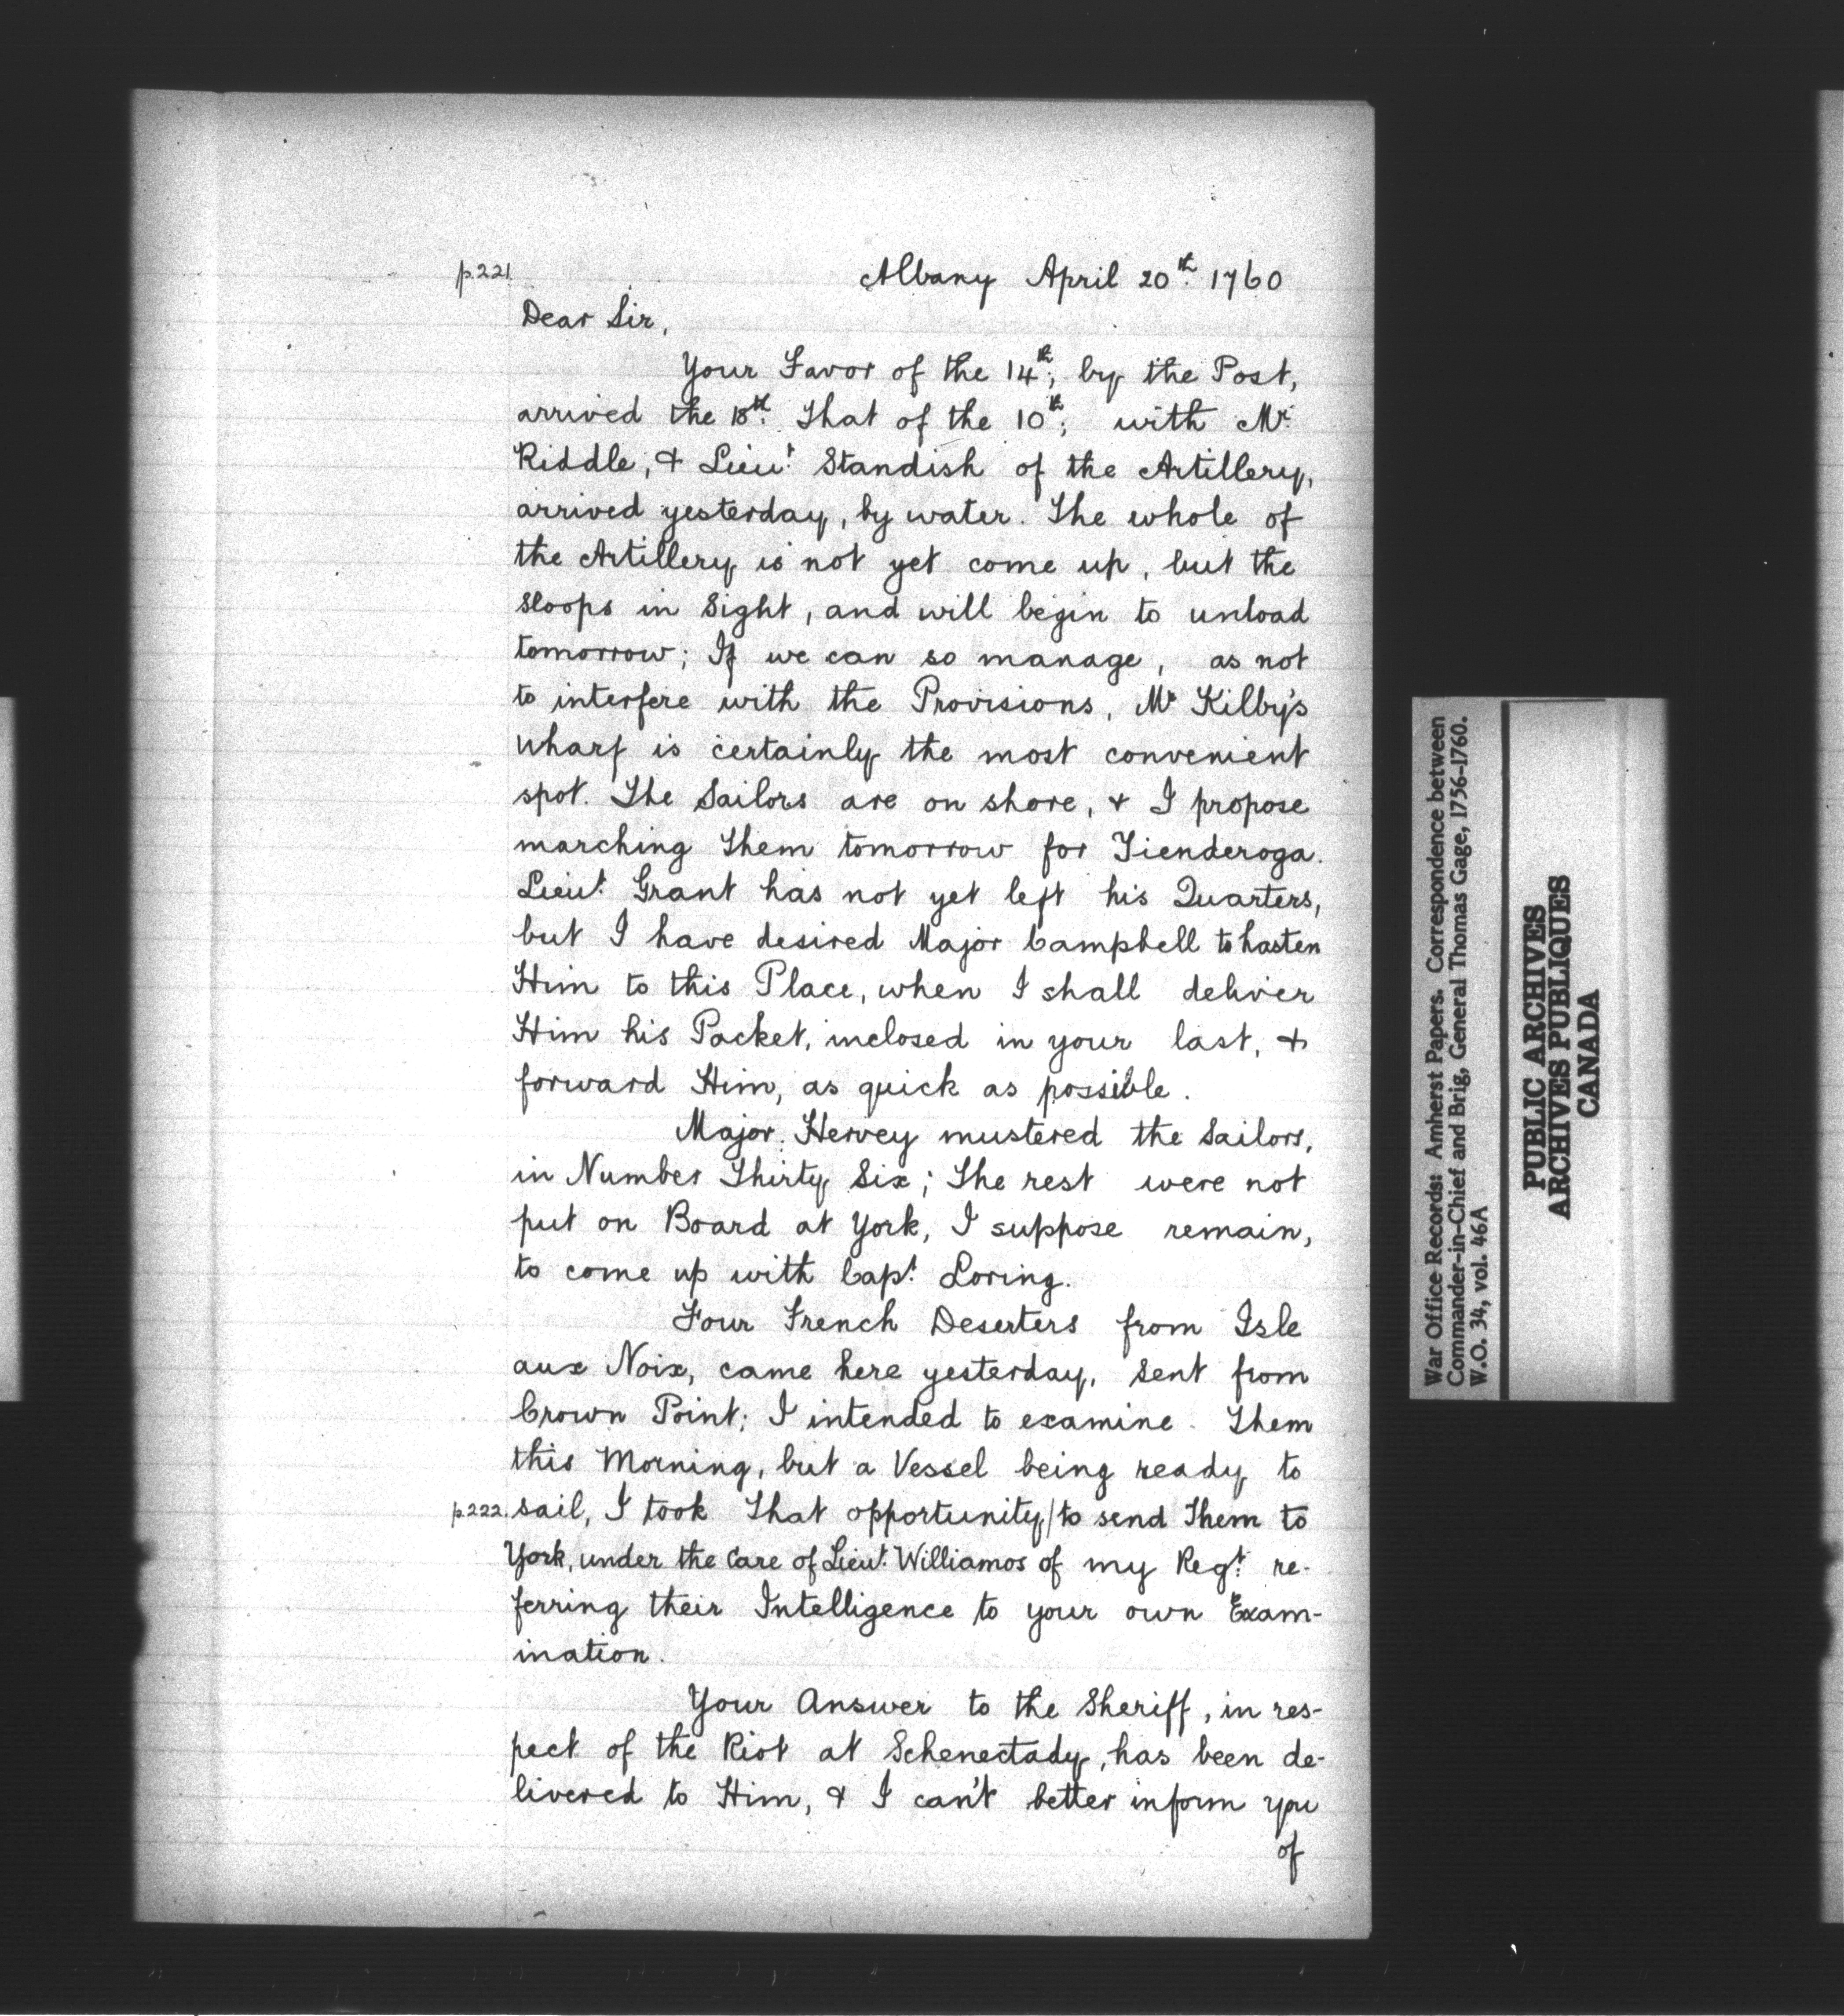 p.221. Albany April 20th. 1760
Dear Sir,
Your Favor of the 14th; by the Post,
arrived the 18th. That of the 10th; with Mr.
Riddle, & Lieut. Standish of the Artillery,
arrived yesterday, by water. The whole of
the Artillery is not yet come up, but the
Sloops in Sight, and will begin to unload
tomorrow; If we can so manage, as not
to interfere with the Provisions, Mr Kilby's
Wharf is certainly the most convenient
spot. The Sailors are on shore, & I propose
marching Them tomorrow for Tienderoga.
Lieut. Grant has not yet left his Quarters,
but I have desired Major Campbell to hasten
Him to this Place, when I shall deliver
Him his Packet, inclosed in your last, &
forward Him, as quick as possible.
Major Hervey mustered the Sailors,
in Number Thirty Six; The rest were not
put on Board at York, I suppose remain,
to come up with Capt. Loring.
Four French Deserters from Isle
aux Noix, came here yesterday, Sent from
Crown Point; I intended to examine Them
this Morning, but a Vessel being ready to
p.222. sail, I took That opportunity/to send Them to
York, under the Care of Lieut. Williamos of my Regt. re-
ferring their Intelligence to your own Exam-
ination.
Your Answer to the Sheriff, in res-
pect of the Riot at Schenectady, has been de-
livered to Him, & I can't better inform you
of
War Office Records: Amherst Papers. Correspondence between
Commander-in-Chief and Brig, General Thomas Gage, 1756-1760.
W.O. 34, vol. 46A
PUBLIC ARCHIVES
ARCHIVES PUBLIQUES
CANADA